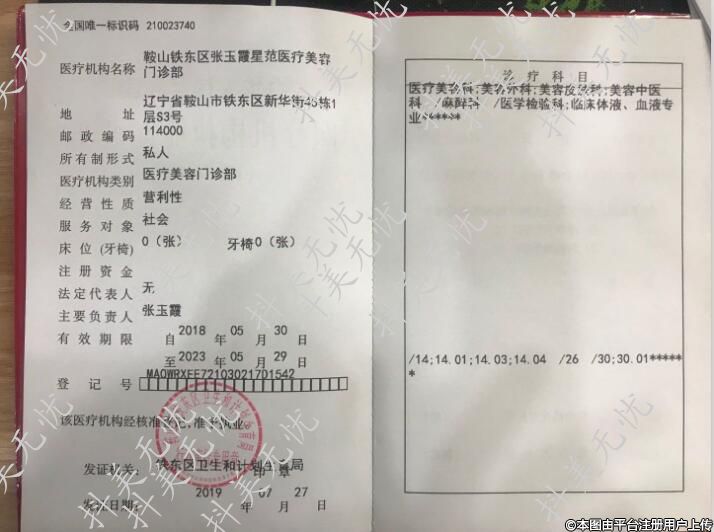 全国唯一标识码 210023740
医疗机构名称 鞍山铁东区张玉霞星范医疗美容
门诊部
地 址 辽宁省鞍山市铁东区新华街45栋1
层S3号
邮政编码 114000
所有制形式 私人
医疗机构类别 医疗美容门诊部
经营性质 营利性
服务对象 社会
床位(牙椅) 0 (张) 牙椅0 (张)
注册资金
法定代表人 无
主要负责人 张玉霞
有效期限 自 2018 年 05 月 30 日
至 2023 年 05 月 29 日
登记号 MA0WRXFE72103021701542
该医疗机构经核准登记,准予执业。
发证机关: 铁东区卫生和计划生育局
印章
发证日期: 2019 年 07 月 27 日
诊疗科目
医疗美容科;美容外科;美容皮肤科;美容中医
科 /麻醉科 /医学检验科;临床体液、血液专
业******
/14;14.01;14.03;14.04 /26 /30;30.01*****
*
抖美无忧
©本图由平台注册用户上传